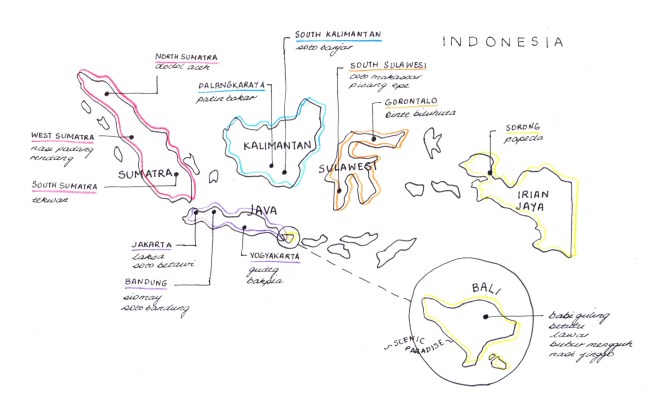 INDONESIA
NORTH SUMATRA
dodol aceh
WEST SUMATRA
nasi padang
rendang
SOUTH SUMATRA
tekwan
SUMATRA
PALANGKARAYA
patin bakar
SOUTH KALIMANTAN
soto banjar
KALIMANTAN
SOUTH SULAWESI
coto makassar
pisang epe
GORONTALO
binte biluhuta
SULAWESI
SORONG
papeda
IRIAN
JAYA
JAVA
JAKARTA
laksa
soto betawi
BANDUNG
siomay
soto bandung
YOGYAKARTA
gudeg
bakpia
BALI
SCENIC
PARADISE
babi guling
betutu
lawar
bubur mengguh
nasi jinggo